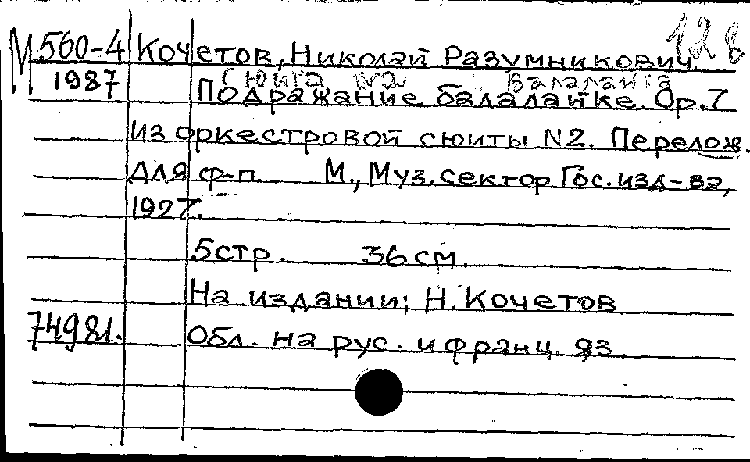 128
М 560-4 Кочетов, Николай Разумникович.
1987 Сюита №2 Балалайка
Подражание балалайке. Ор.7
из оркестровой сюиты N2. Перелож.
для ф-п. М., Муз. сектор Гос. изд-ва,
1927.
5 стр. 36 см.
На издании: Н. Кочетов
74981. Обл. на рус. и франц. яз.